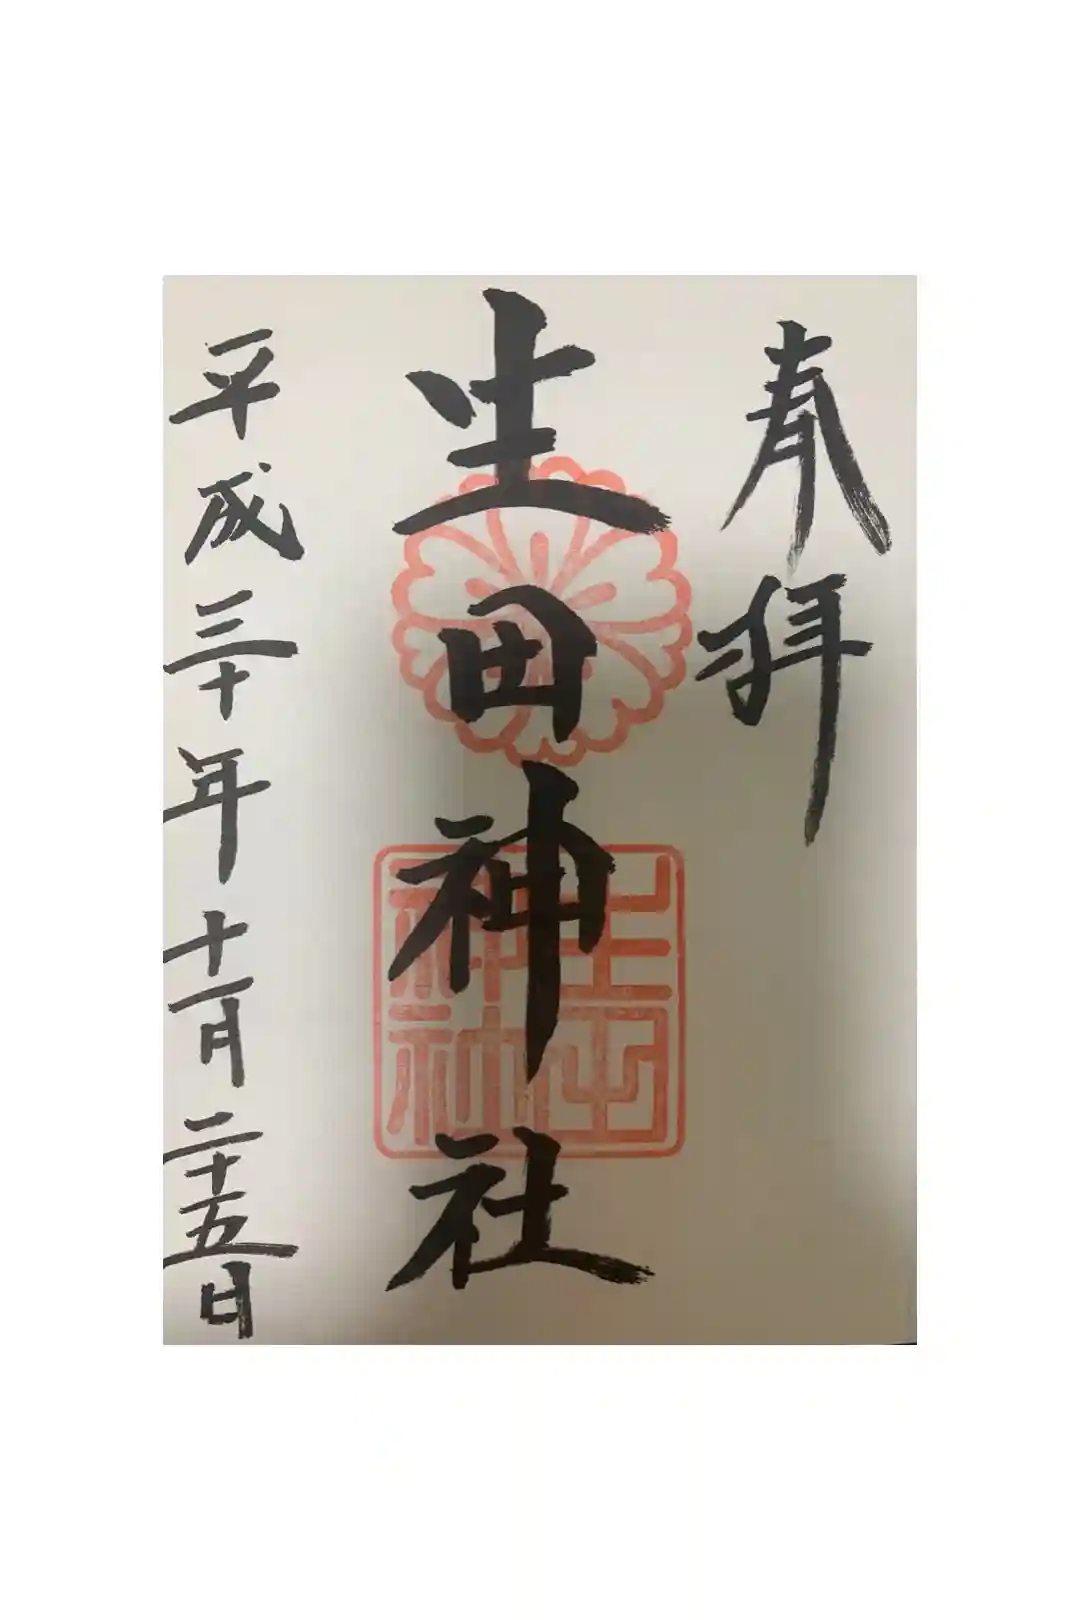 奉拝
生田神社
生田神社
平成三十年十一月二十五日